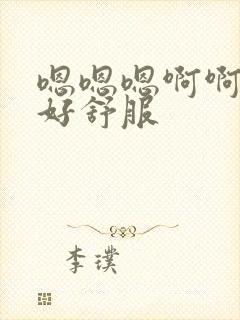 嗯嗯嗯啊啊
好舒服
李璞